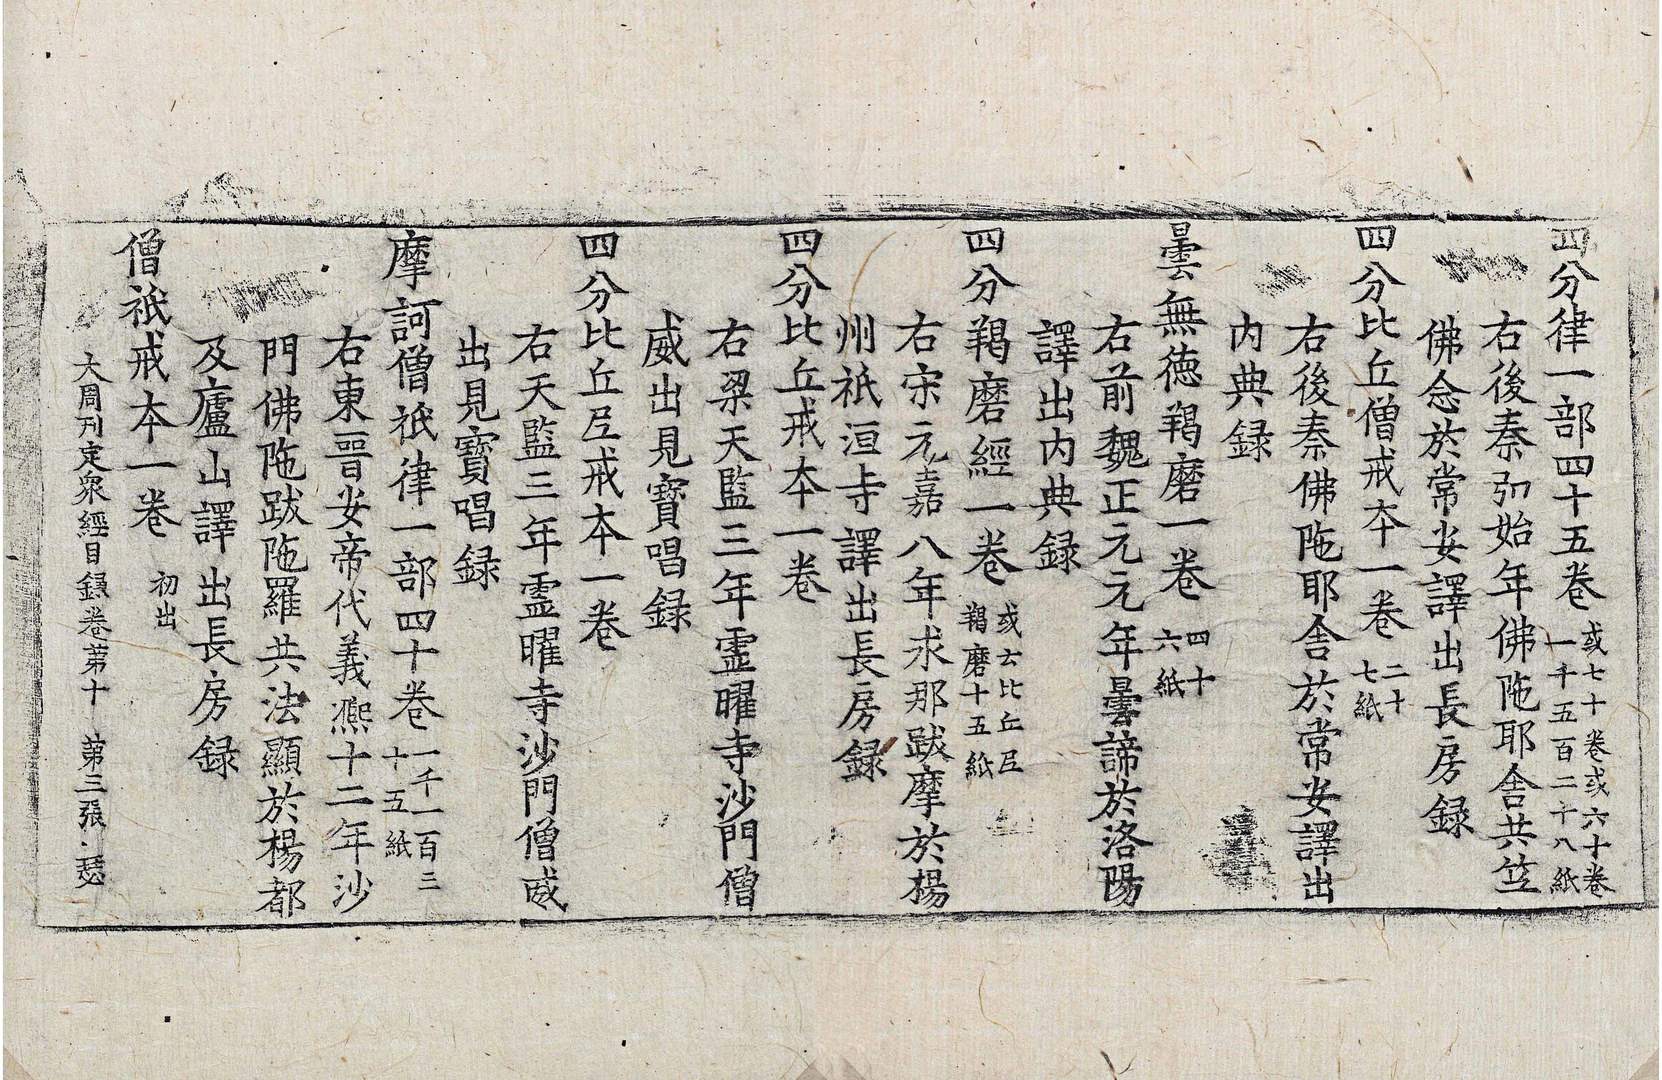 四分律一部四十五卷 或七十卷或六十卷 一千五百二十八紙
右後秦弘始年佛陁耶舍共竺
佛念於常安譯出長房録
四分比丘僧戒本一卷 二十七紙
右後秦佛陁耶舍於常安譯出
内典録
曇無德羯磨一卷 四十六紙
右前魏正元元年曇諦於洛陽
譯出内典録
四分羯磨經一卷 或云比丘尼羯磨十五紙
右宋元嘉八年求那跋摩於楊
州祇洹寺譯出長房録
四分比丘戒本一卷
右梁天監三年靈曜寺沙門僧
威出見寶唱録
四分比丘尼戒本一卷
右天監三年靈曜寺沙門僧威
出見寶唱録
摩訶僧祇律一部四十卷 一千一百三十五紙
右東晉安帝代義熙十二年沙
門佛陁跋陁羅共法顯於楊都
及廬山譯出長房録
僧祇戒本一卷 初出
大周刊定衆經目録卷苐十 苐三張 瑟